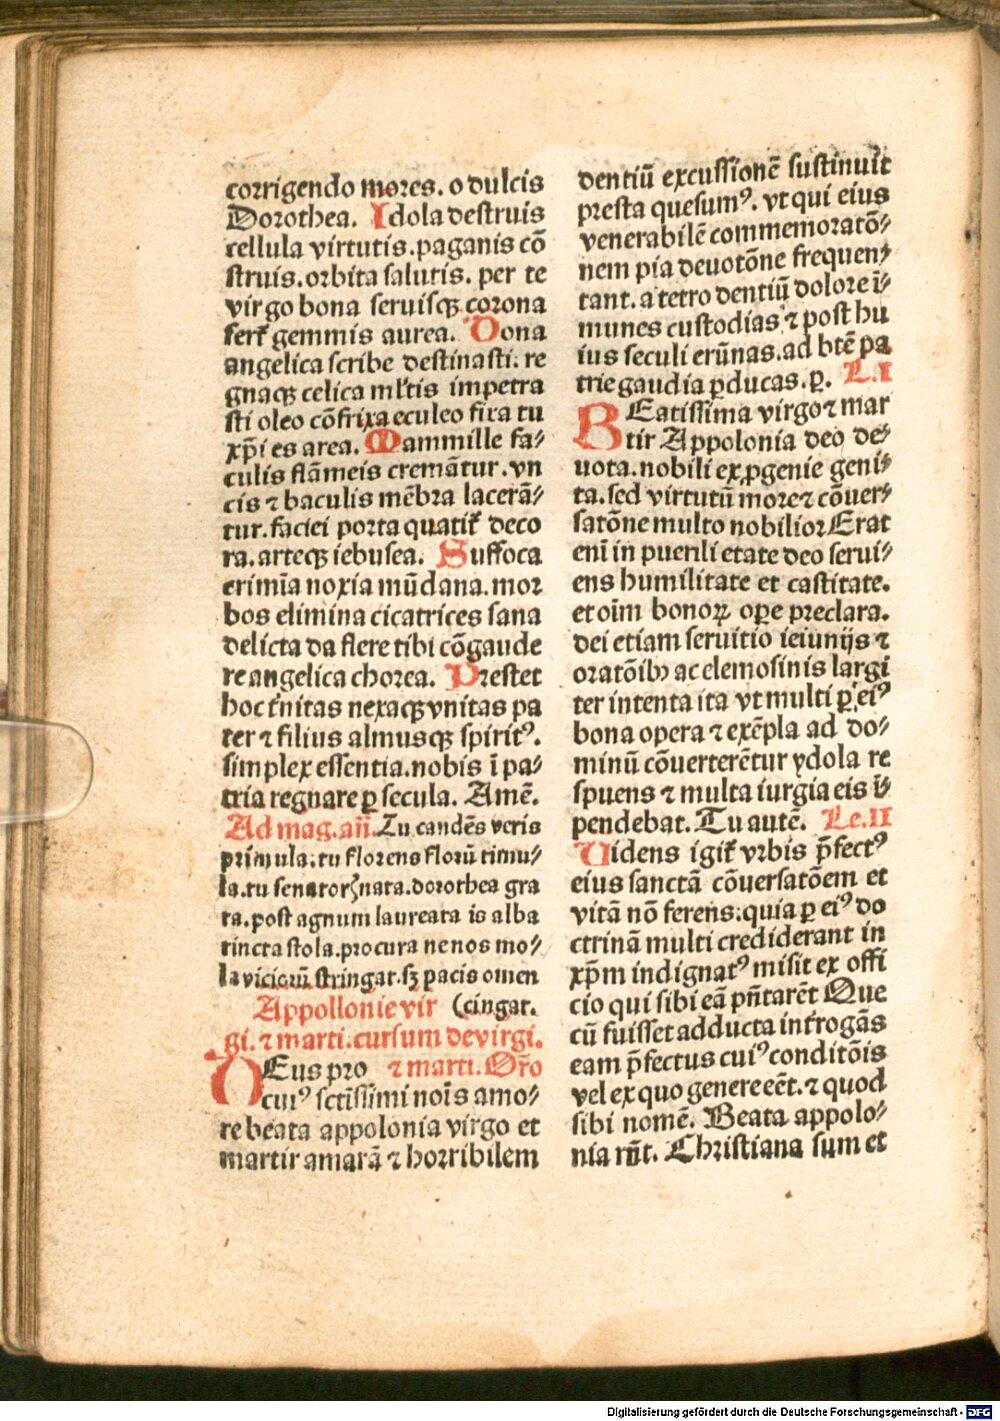 corrigendo mores. o dulcis
Dorothea. Idola destruis
cellula virtutis. paganis cō
struis. orbita salutis. per te
virgo bona seruisqꝫ corona
fert᷑ gemmis aurea. Dona
angelica scribe destinasti. re
gnaqꝫ celica ml̓tis impetra
sti oleo cōfrixa eculeo fixa tu
xp̄i es area. Mammille fa⸗
culis flāmeis cremātur. vn
cis ⁊ baculis mēbra lacerā⸗
tur. faciei porta quatit᷑ deco
ra. arteqꝫ iebusea. Suffoca
crimīa noxia mūdana. mor
bos elimina cicatrices sana
delicta da flere tibi cōgaude
re angelica chorea. Prestet
hoc t̓nitas nexaqꝫ vnitas pa
ter ⁊ filius almusqꝫ spiritꝰ.
simplex essentia. nobis ī pa⸗
tria regnare ꝑ secula. Amē.
Ad mag. añ. Tu candēs veris
primula. tu florens florū timu⸗
la. tu senatorꝫ nata. dorothea gra
ta. post agnum laureata is alba
tincta stola. procura ne nos mo⸗
la viciorū stringat. sꝫ pacis omen
Appollonie vir (cingat.
gi. ⁊ marti. cursum de virgi.
DEus pro ⁊ marti. Or̄o
cuiꝰ sctīssimi noīs amo⸗
re beata appolonia virgo et
martir amarā ⁊ horribilem
dentiū excussionē sustinuit
presta quesumꝰ. vt qui eius
venerabilē commemoratō⸗
nem pia deuotōne frequen⸗
tant. a tetro dentiū dolore ī⸗
munes custodias ⁊ post hu
ius seculi erūnas. ad btē pa
trie gaudia ꝑducas. ꝑ. L. I
BEatissima virgo ⁊ mar
tir Appolonia deo de⸗
uota. nobili ex ꝓgenie geni⸗
ta. sed virtutū more ⁊ cōuer⸗
satōne multo nobilior Erat
enī in puerili etate deo serui⸗
ens humilitate et castitate.
et oīm bonoꝝ oꝑe preclara.
dei etiam seruitio ieiunijs ⁊
oratōibꝫ ac elemosinis largi
ter intenta ita vt multi ꝑ eiꝰ
bona opera ⁊ exēpla ad do⸗
minū cōuerterētur ydola re
spuens ⁊ multa iurgia eis ī⸗
pendebat. Tu autē. Le. II
Uidens igit᷑ vrbis p̄fectꝰ
eius sanctā cōuersatōem et
vitā nō ferens. quia ꝑ eiꝰ do
ctrinā multi crediderant in
xp̄m indignatꝰ misit ex offi
cio qui sibi eā pn̄tarēt Que
cū fuisset adducta int̓rogās
eam p̄fectus cuiꝰ conditōis
vel ex quo genere eēt. ⁊ quod
sibi nomē. Beata appolo⸗
nia rn̄t. Christiana sum et
Digitalisierung gefördert durch die Deutsche Forschungsgemeinschaft - DFG